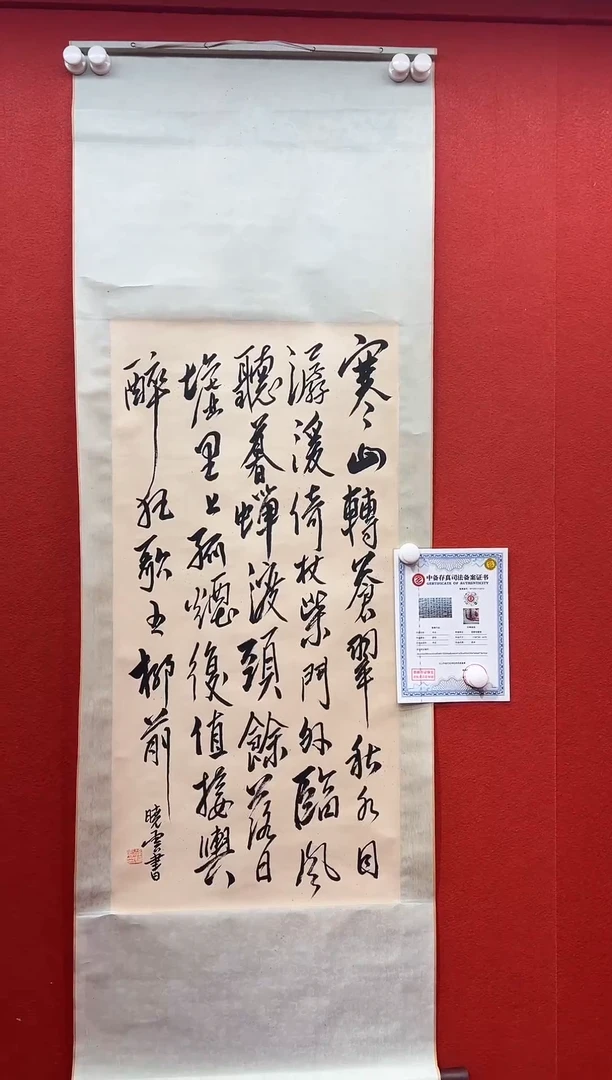 寒山轉蒼翠秋水日
潺湲倚杖柴門外臨風
聽暮蟬渡頭餘落日
墟里上孤煙復值接輿
醉狂歌五柳前
晓雲書
中备存真司法备案证书
CERTIFICATE OF AUTHENTICITY